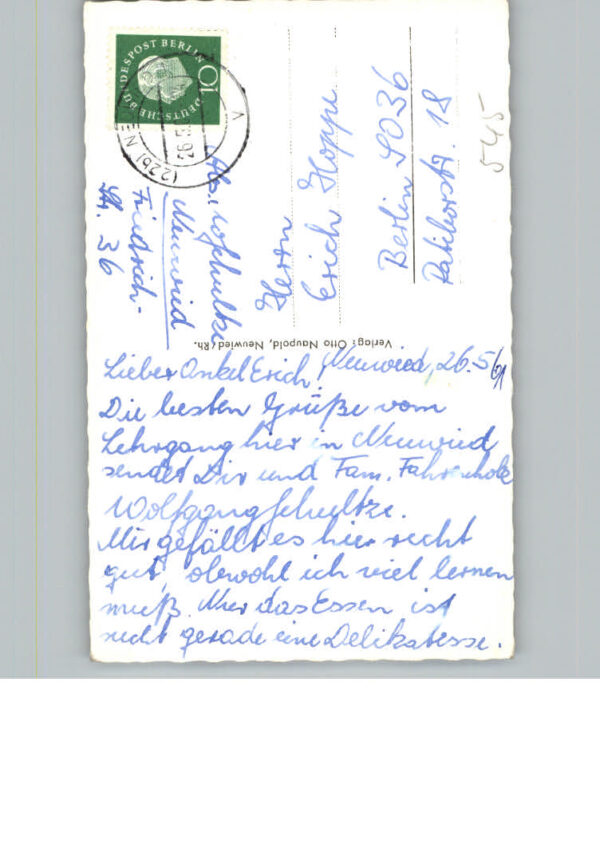 Lieber Onkel Erich! Neuwied, 26.5.61
Die besten Grüße vom
Lehrgang hier in Neuwied
sendet Dir und Fam. Fahrenholz
Wolfgang Schultze.
Mir gefällt es hier recht
gut, obwohl ich viel lernen
muß. Nur das Essen ist
nicht gerade eine Delikatesse.
Verlag: Otto Naupold, Neuwied/Rh.
Abs.: W. Schultze
Neuwied
Friedrich-
Str. 36
Herrn
Erich Hoppe
Berlin SO36
Ratiborstr. 18
545
DEUTSCHE BUNDESPOST BERLIN
10
(22b) NE
26.5.